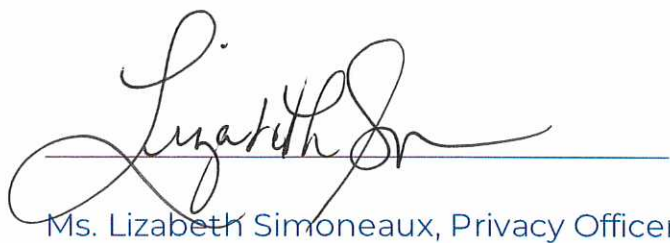 Lizabeth
Ms. Lizabeth Simoneaux, Privacy Officer